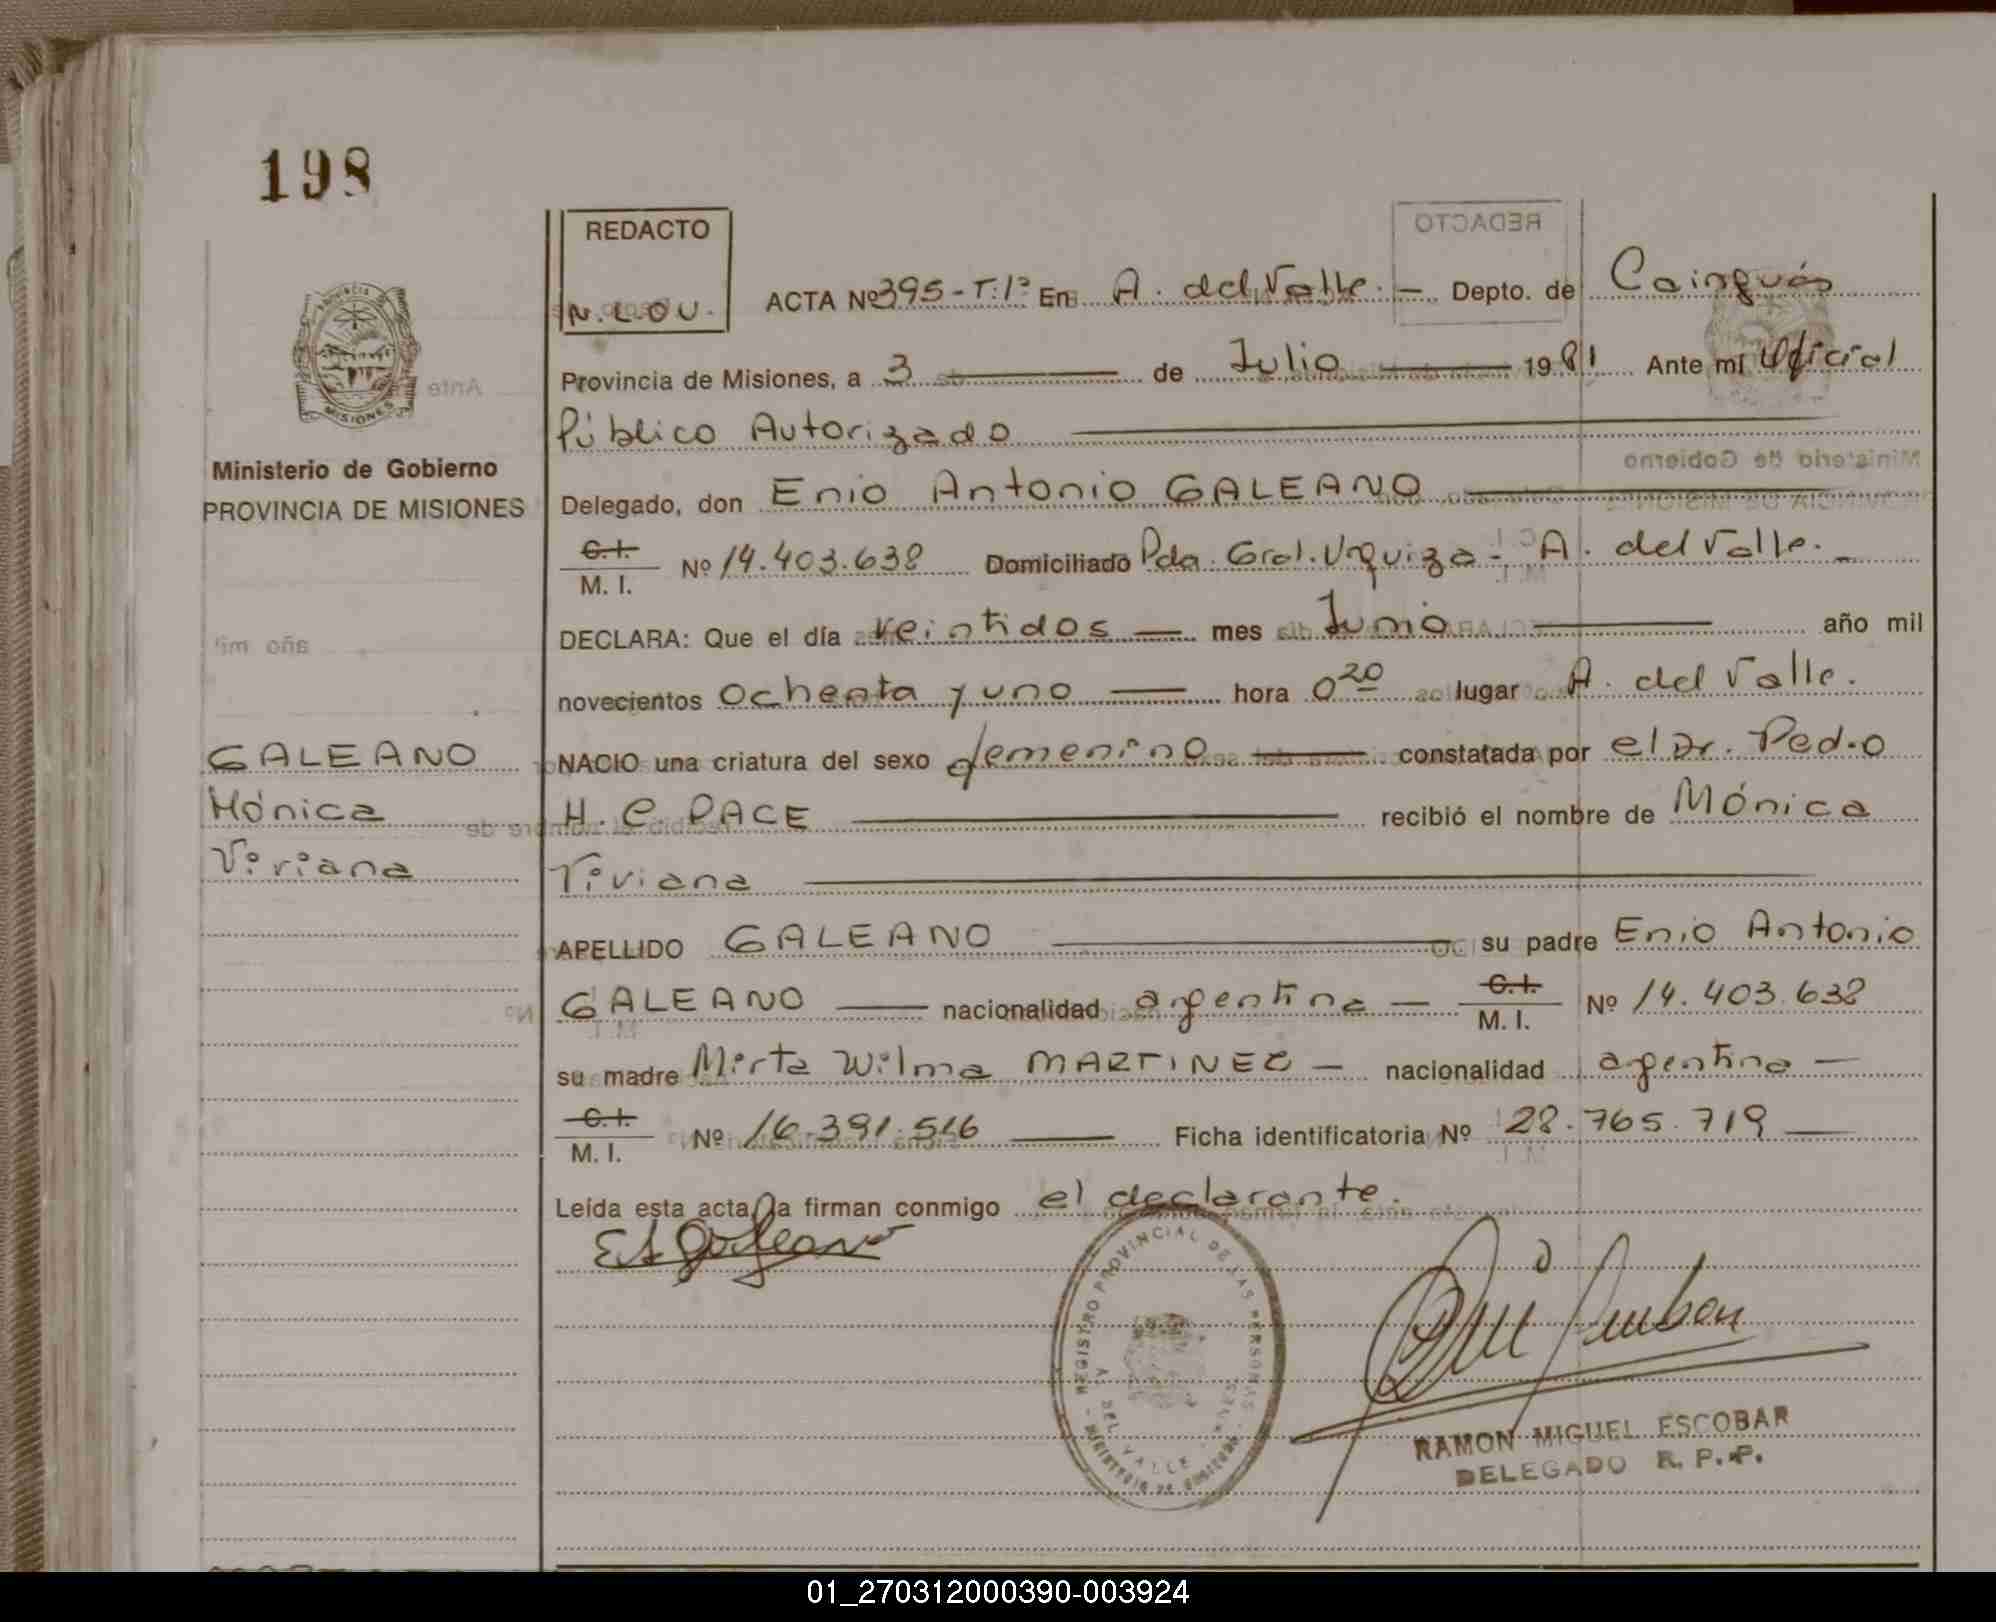 198
REDACTO
N. LOU.
ACTA Nº 395-T:1º En A. del Valle. — Depto. de Cainguás
Provincia de Misiones, a 3 — de Julio — 1981 Ante mí Oficial
Público Autorizado
Delegado, don Enio Antonio GALEANO
C.I.
M. I. Nº 14.403.638 Domiciliado Pda. Gral. Urquiza - A. del Valle. -
DECLARA: Que el día veintidos — mes Junio — año mil
novecientos ochenta y uno — hora 0 20 lugar A. del Valle.
NACIO una criatura del sexo femenino — constatada por el Dr. Pedro
H. C. PACE — recibió el nombre de Mónica
Viviana
APELLIDO GALEANO — su padre Enio Antonio
GALEANO — nacionalidad argentina — C.I.
M. I. Nº 14.403.638
su madre Mirta Wilma MARTINEZ — nacionalidad argentina —
C.I.
M. I. Nº 16.391.516 — Ficha identificatoria Nº 28.765.719 —
Leída esta acta, la firman conmigo el declarante.
EAGaleano
MISIONES
Ministerio de Gobierno
PROVINCIA DE MISIONES
GALEANO
Mónica
Viviana
REGISTRO PROVINCIAL DE LAS PERSONAS
A. DEL VALLE
RAMON MIGUEL ESCOBAR
DELEGADO R. P. P.
01_270312000390-003924